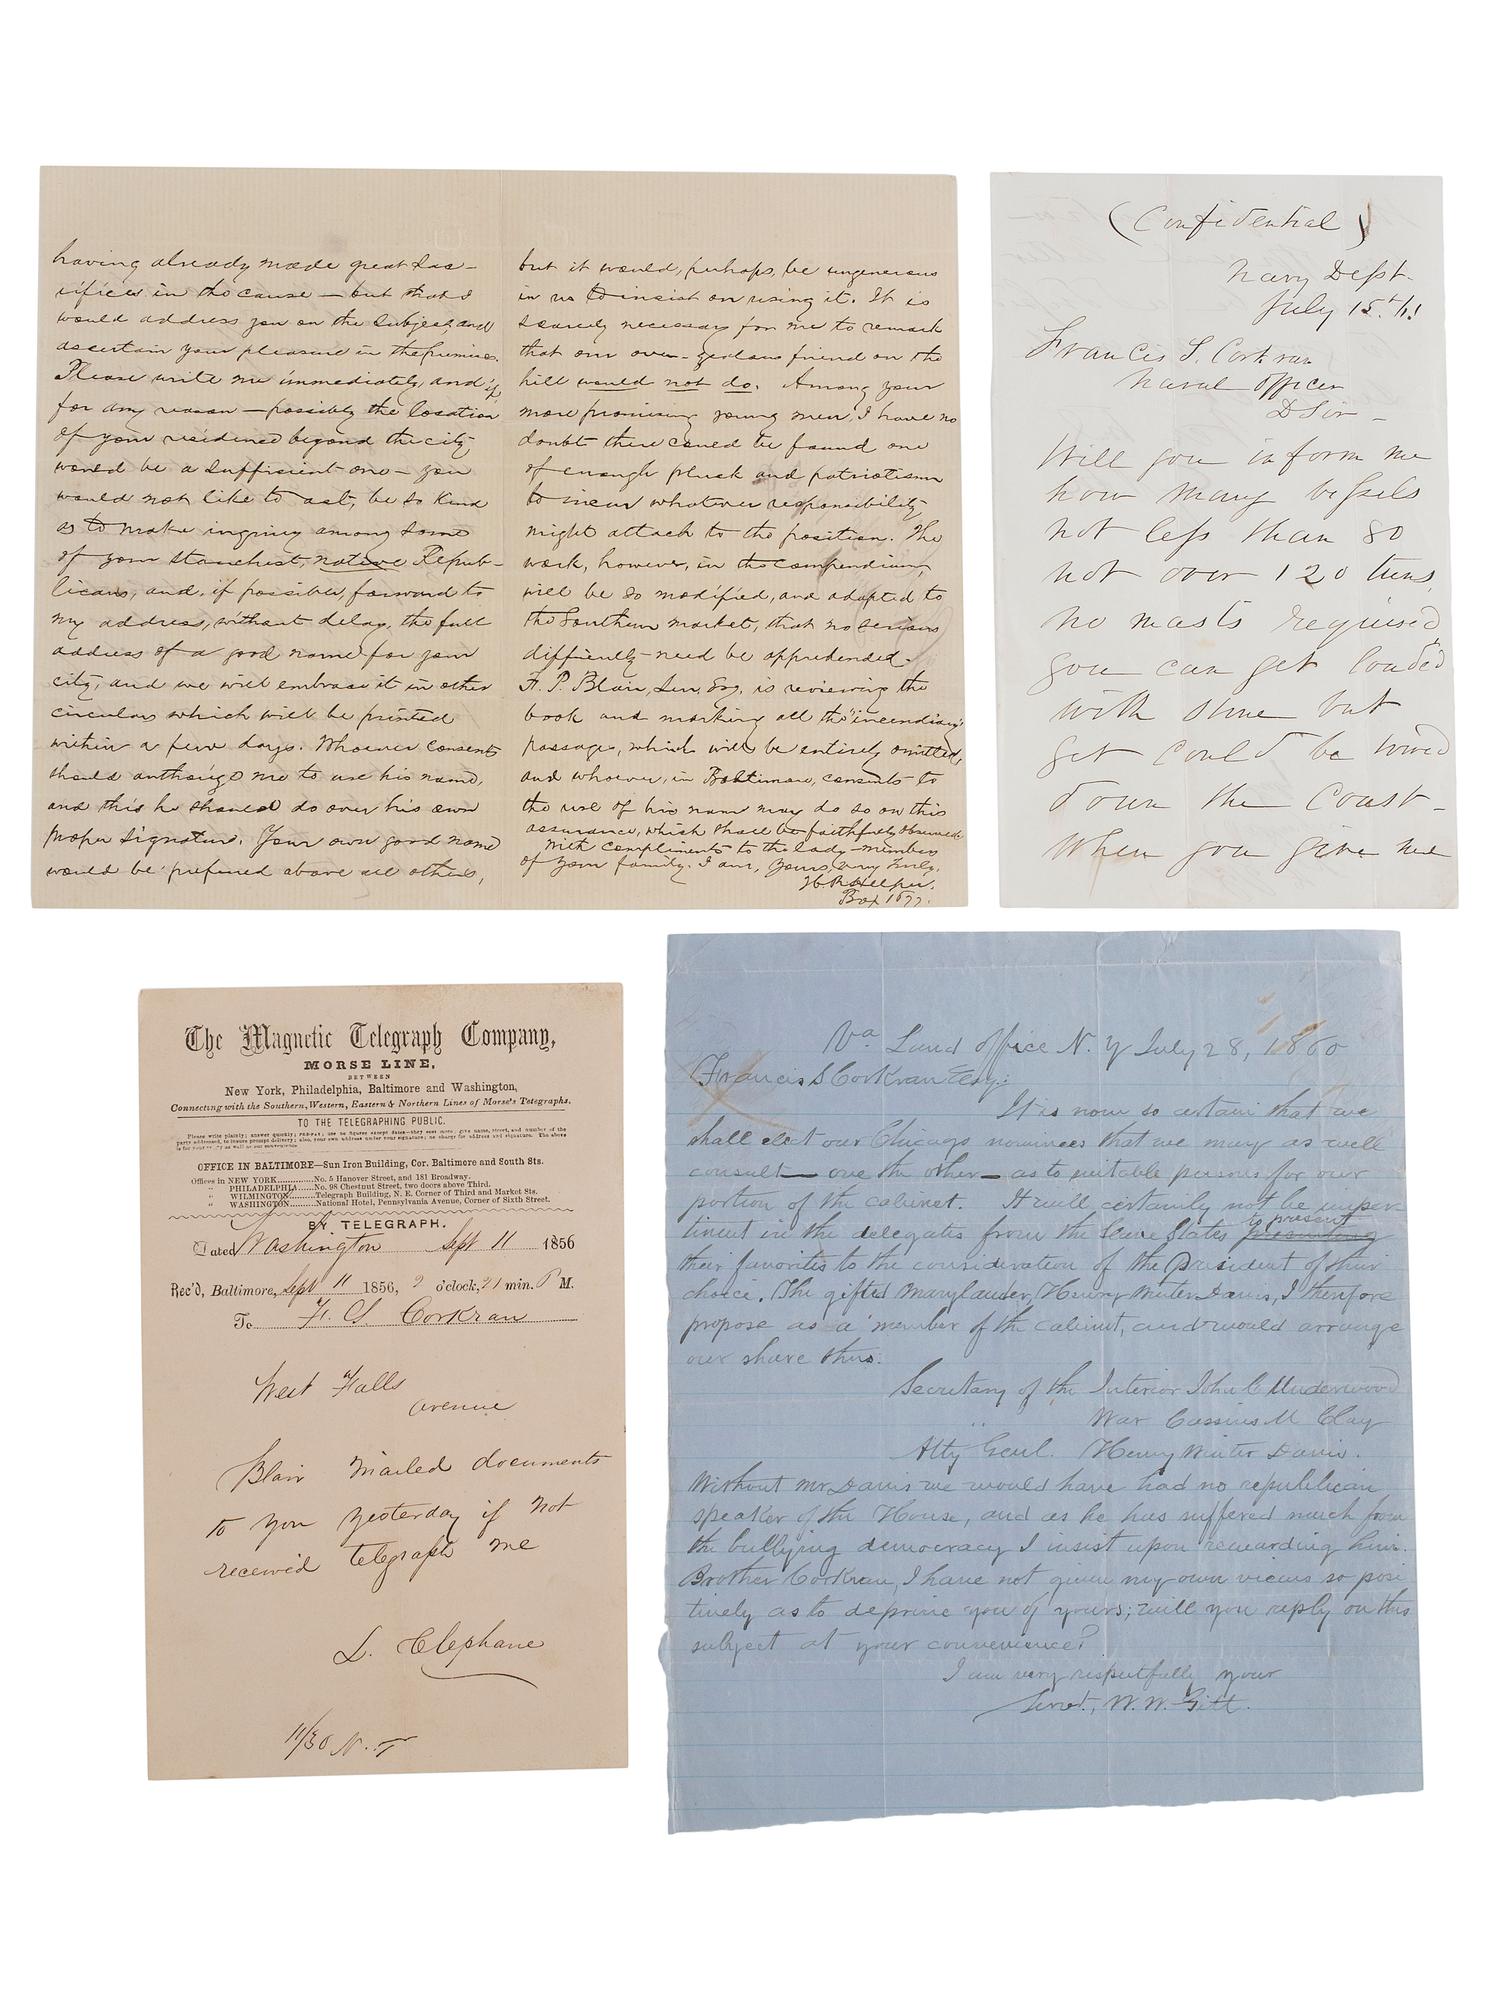 having already made great sac-
rifices in the cause — but that I
would address you on the subject, and
ascertain your pleasure in the premises.
Please write me immediately, and if,
for any reason — possibly the location
of your residence beyond the city
would be a sufficient one — you
would not like to act, be so kind
as to make inquiry among some
of your staunchest, native Repub-
licans, and, if possible, forward to
my address, without delay, the full
address of a good name for your
city, and we will embrace it in other
circulars which will be printed
within a few days. Whoever consents
should authorize me to use his name,
and this he should do over his own
proper signature. Your own good name
would be preferred above all others,
but it would, perhaps, be ungenerous
in us to insist on using it. It is
scarcely necessary for me to remark
that our over-zealous friend on the
hill would not do. Among your
more promising young men, I have no
doubt there could be found one
of enough pluck and patriotism
to incur whatever responsibility
might attach to the position. The
work, however, in the compendium,
will be so modified, and adapted to
the Southern market, that no serious
difficulty need be apprehended.
F. P. Blair, Sen, Esq, is reviewing the
book and marking all the "incendiary"
passages, which will be entirely omitted,
and whoever, in Baltimore, consents to
the use of his name may do so on this
assurance, which shall be faithfully observed.
With compliments to the lady-members
of your family, I am, Yours, very truly,
H. R. Helper.
Box 1877.
(Confidential)
Navy Dept.
July 15th/61
Francis S. Corkran
Naval Officer
D Sir -
Will you inform me
how many vessels
not less than 80
not over 120 tuns,
no masts required
you can get loaded
with stone but
yet could be towed
down the Coast -
When you give me
The Magnetic Telegraph Company,
MORSE LINE,
BETWEEN
New York, Philadelphia, Baltimore and Washington,
Connecting with the Southern, Western, Eastern & Northern Lines of Morse's Telegraphs.
TO THE TELEGRAPHING PUBLIC.
Please write plainly; answer quickly; use no figures except dates—they cost more; give name, street, and number of the
party addressed, to insure prompt delivery; also, your own address under your signature; no charge for address and signature. The above
is for your as well as our convenience.
OFFICE IN BALTIMORE—Sun Iron Building, Cor. Baltimore and South Sts.
Offices in NEW YORK..........No. 5 Hanover Street, and 181 Broadway.
" PHILADELPHIA......No. 98 Chestnut Street, two doors above Third.
" WILMINGTON.........Telegraph Building, N. E. Corner of Third and Market Sts.
" WASHINGTON.........National Hotel, Pennsylvania Avenue, Corner of Sixth Street.
BY TELEGRAPH.
Dated Washington Sept 11 1856
Rec'd, Baltimore, Sept 11 1856, 2 o'clock, 21 min. P M.
To F. S. Corkran
West Falls
avenue
Blair mailed documents
to you yesterday if not
received telegraph me
L. Clephane
11/30 N. T
Va Land Office N. Y July 28, 1860
Francis S Corkran Esq:
It is now so certain that we
shall elect our Chicago nominees that we may as well
consult — one the other — as to suitable persons for our
portion of the cabinet. It will certainly not be imper
tinent in the delegates from the Slave States to present presenting
their favorites to the consideration of the President of their
choice. The gifted Marylander, Henry Winter Davis, I therefore
propose as a member of the cabinet, and would arrange
our share thus:
Secretary of the Interior John C Underwood
" War Cassius M Clay
Atty Genl. Henry Winter Davis.
Without Mr Davis we would have had no republican
speaker of the House, and as he has suffered much from
the bullying democracy I insist upon rewarding him.
Brother Corkran, I have not given my own views so posi
tively as to deprive you of yours; will you reply on this
subject at your convenience?
I am very respectfully your
Servt, W. W. Gitt.